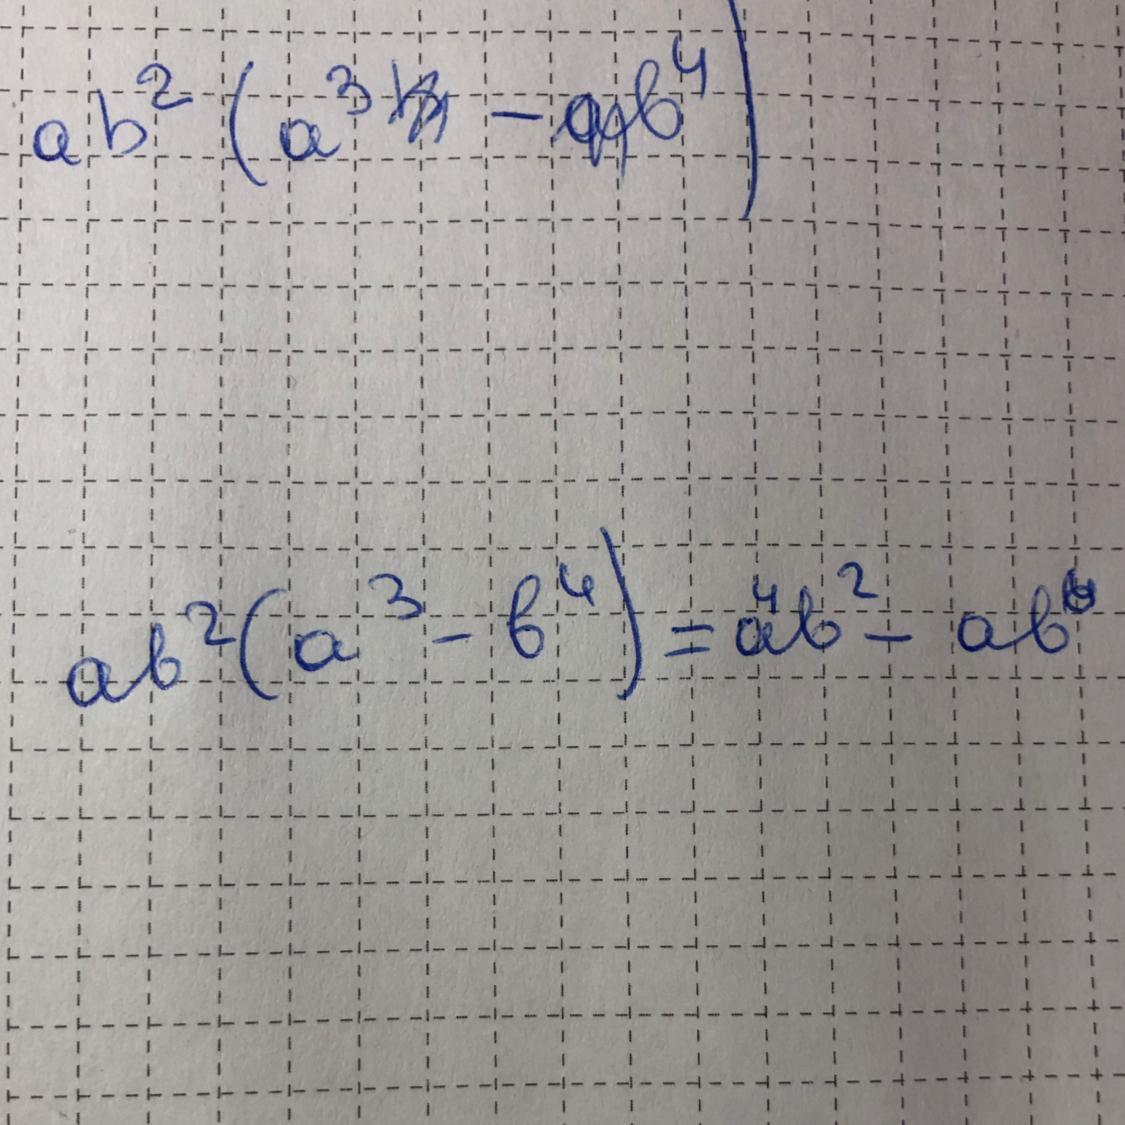 ab² (a³ - b⁴)
ab² (a³ - b⁴) = a⁴b² - ab⁶